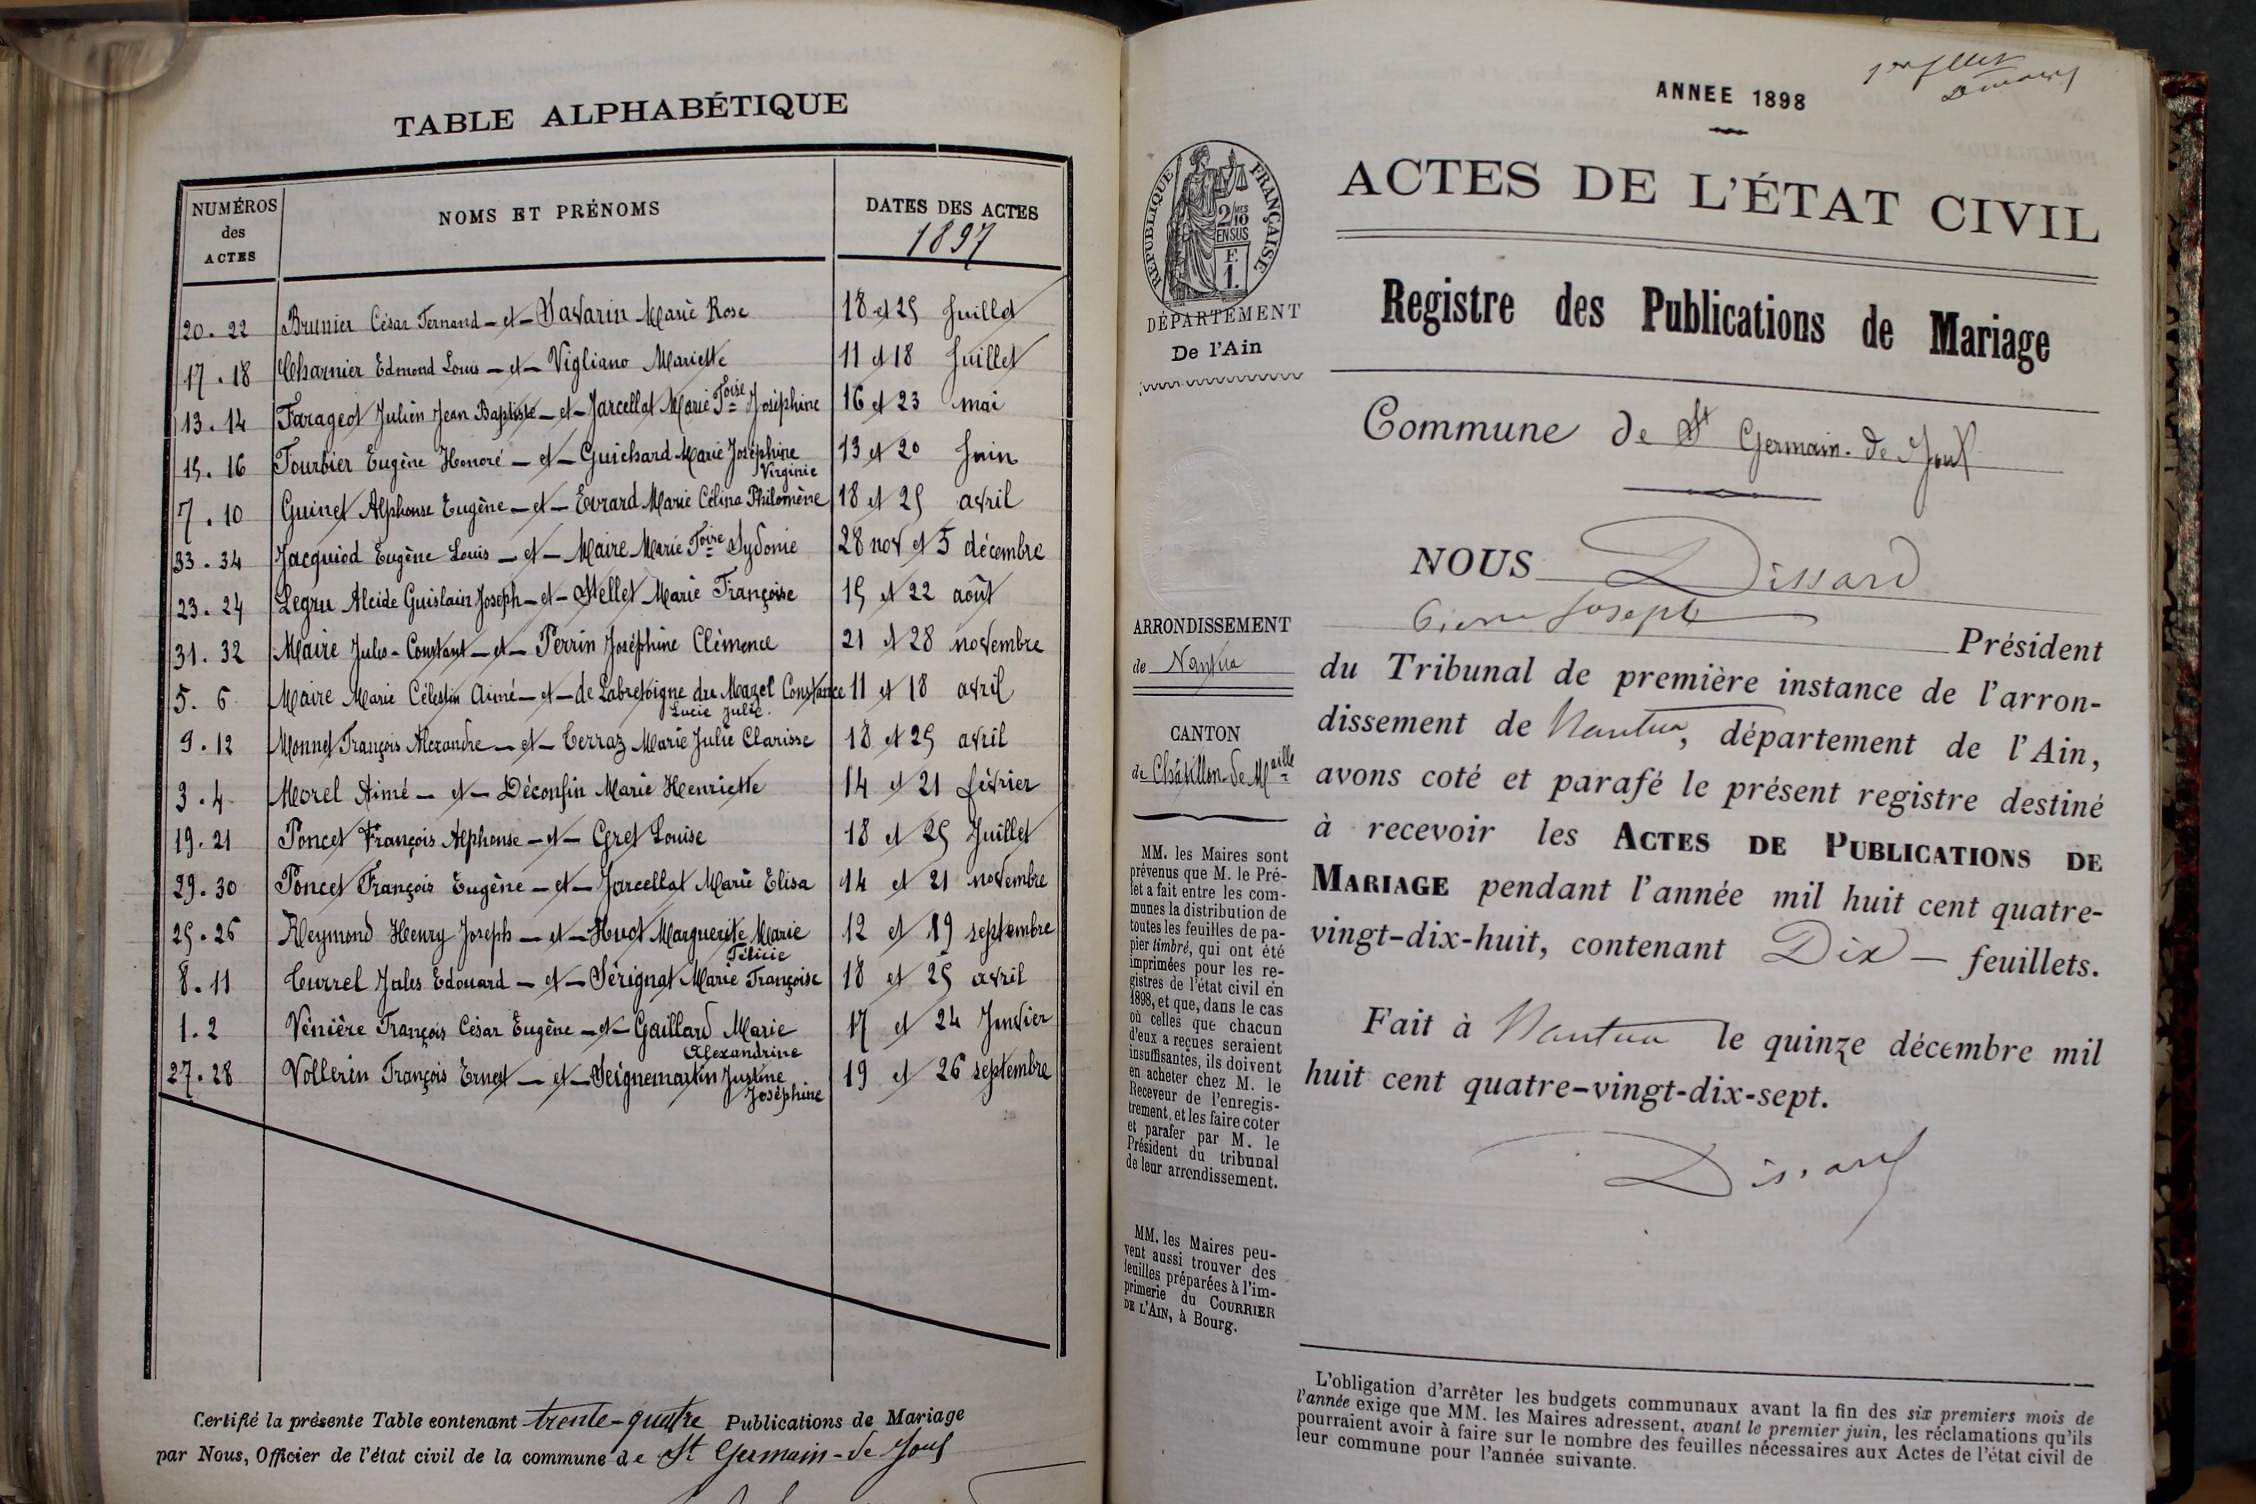 TABLE ALPHABÉTIQUE
NUMÉROS des ACTES
NOMS ET PRÉNOMS
DATES DES ACTES
1897
20 . 22 Brunier César Fernand - et - Savarin Marie Rose 18 et 25 Juillet
17 . 18 Charnier Edmond Louis - et - Vigliano Mariette 11 et 18 Juillet
13 . 14 Farageot Julien Jean Baptiste - et - Jarcellat Marie Foise Joséphine 16 et 23 mai
15 . 16 Fourbier Eugène Honoré - et - Guichard Marie Joséphine Virginie 13 et 20 Juin
7 . 10 Guinet Alphonse Eugène - et - Evrard Marie Célina Philomène 18 et 25 avril
33 . 34 Jacquiod Eugène Louis - et - Maire Marie Foise Sydonie 28 nov et 5 décembre
23 . 24 Legru Alcide Guislain Joseph - et - Stellet Marie Françoise 15 et 22 août
31 . 32 Maire Jules - Constant - et - Perrin Joséphine Clémence 21 et 28 novembre
5 . 6 Maire Marie Célestin Aimé - et - de Labretoigne du Mazel Constance Lucie Julie. 11 et 18 avril
9 . 12 Monnet François Alexandre - et - Terraz Marie Julie Clarisse 18 et 25 avril
3 . 4 Morel Aimé - et - Déconfin Marie Henriette 14 et 21 février
19 . 21 Poncet François Alphonse - et - Gret Louise 18 et 25 Juillet
29 . 30 Poncet François Eugène - et - Jarcellat Marie Elisa 14 et 21 novembre
25 . 26 Reymond Henry Joseph - et - Huot Marguerite Marie Félicie 12 et 19 septembre
8 . 11 Turrel Jules Edouard - et - Sérignat Marie Françoise 18 et 25 avril
1 . 2 Vénière François César Eugène - et - Gaillard Marie Alexandrine 17 et 24 Janvier
27 . 28 Vollerin François Ernest - et - Seignemartin Justine Joséphine 19 et 26 septembre
Certifié la présente Table contenant trente-quatre Publications de Mariage
par Nous, Officier de l'état civil de la commune de St Germain-de Joux
ANNEE 1898
ACTES DE L'ÉTAT CIVIL
RÉPUBLIQUE FRANÇAISE
2/10 MES
EN SUS
F.
1.
DÉPARTEMENT
De l'Ain
Registre des Publications de Mariage
Commune de St Germain-de Joux
ARRONDISSEMENT
de Nantua
CANTON
de Châtillon-de Maille
MM. les Maires sont
prévenus que M. le Pré-
fet a fait entre les com-
munes la distribution de
toutes les feuilles de pa-
pier timbré, qui ont été
imprimées pour les re-
gistres de l'état civil en
1898, et que, dans le cas
où celles que chacun
d'eux a reçues seraient
insuffisantes, ils doivent
en acheter chez M. le
Receveur de l'enregis-
trement, et les faire coter
et parafer par M. le
Président du tribunal
de leur arrondissement.
MM. les Maires peu-
vent aussi trouver des
feuilles préparées à l'im-
primerie du COURRIER
DE L'AIN, à Bourg.
NOUS Dissard
Pierre Joseph
Président
du Tribunal de première instance de l'arron-
dissement de Nantua, département de l'Ain,
avons coté et parafé le présent registre destiné
à recevoir les ACTES DE PUBLICATIONS DE
MARIAGE pendant l'année mil huit cent quatre-
vingt-dix-huit, contenant Dix — feuillets.
Fait à Nantua le quinze décembre mil
huit cent quatre-vingt-dix-sept.
Dissard
L'obligation d'arrêter les budgets communaux avant la fin des six premiers mois de
l'année exige que MM. les Maires adressent, avant le premier juin, les réclamations qu'ils
pourraient avoir à faire sur le nombre des feuilles nécessaires aux Actes de l'état civil de
leur commune pour l'année suivante.